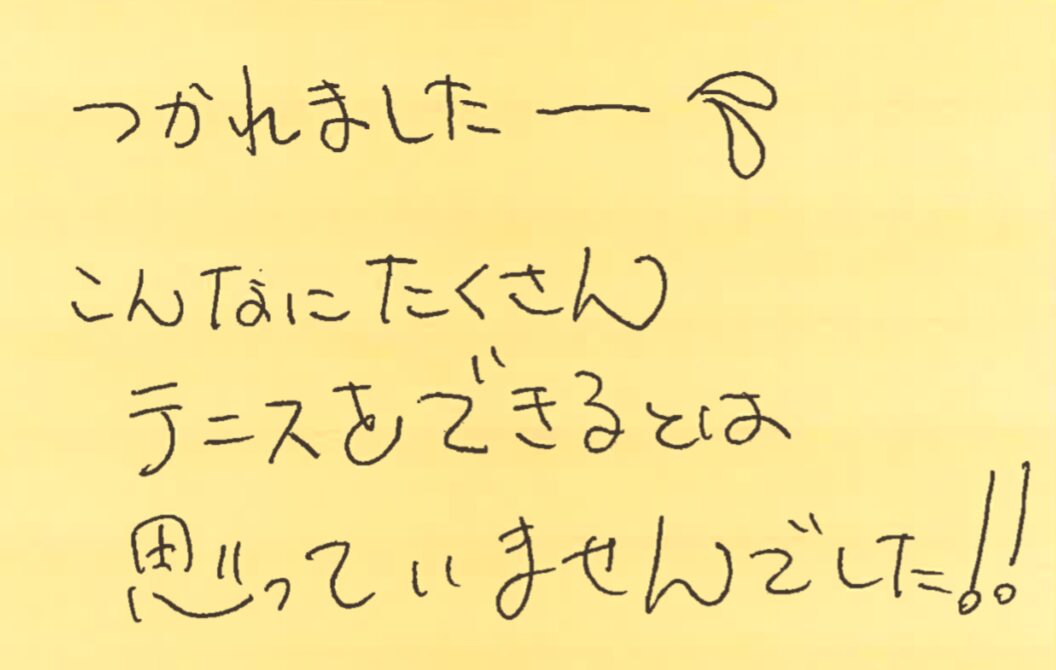 つかれましたー
こんなにたくさん
テニスをできるとは
思っていませんでした!!